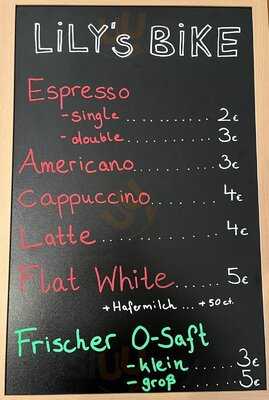 LiLY's BiKE
Espresso
- single ........... 2€
- double ......... 3€
Americano .......... 3€
Cappuccino ......... 4€
Latte ............... 4€
Flat White ...... 5€
+ Hafermilch ... + 50 ct.
Frischer O-Saft
- klein ....... 3€
- groß ....... 5€